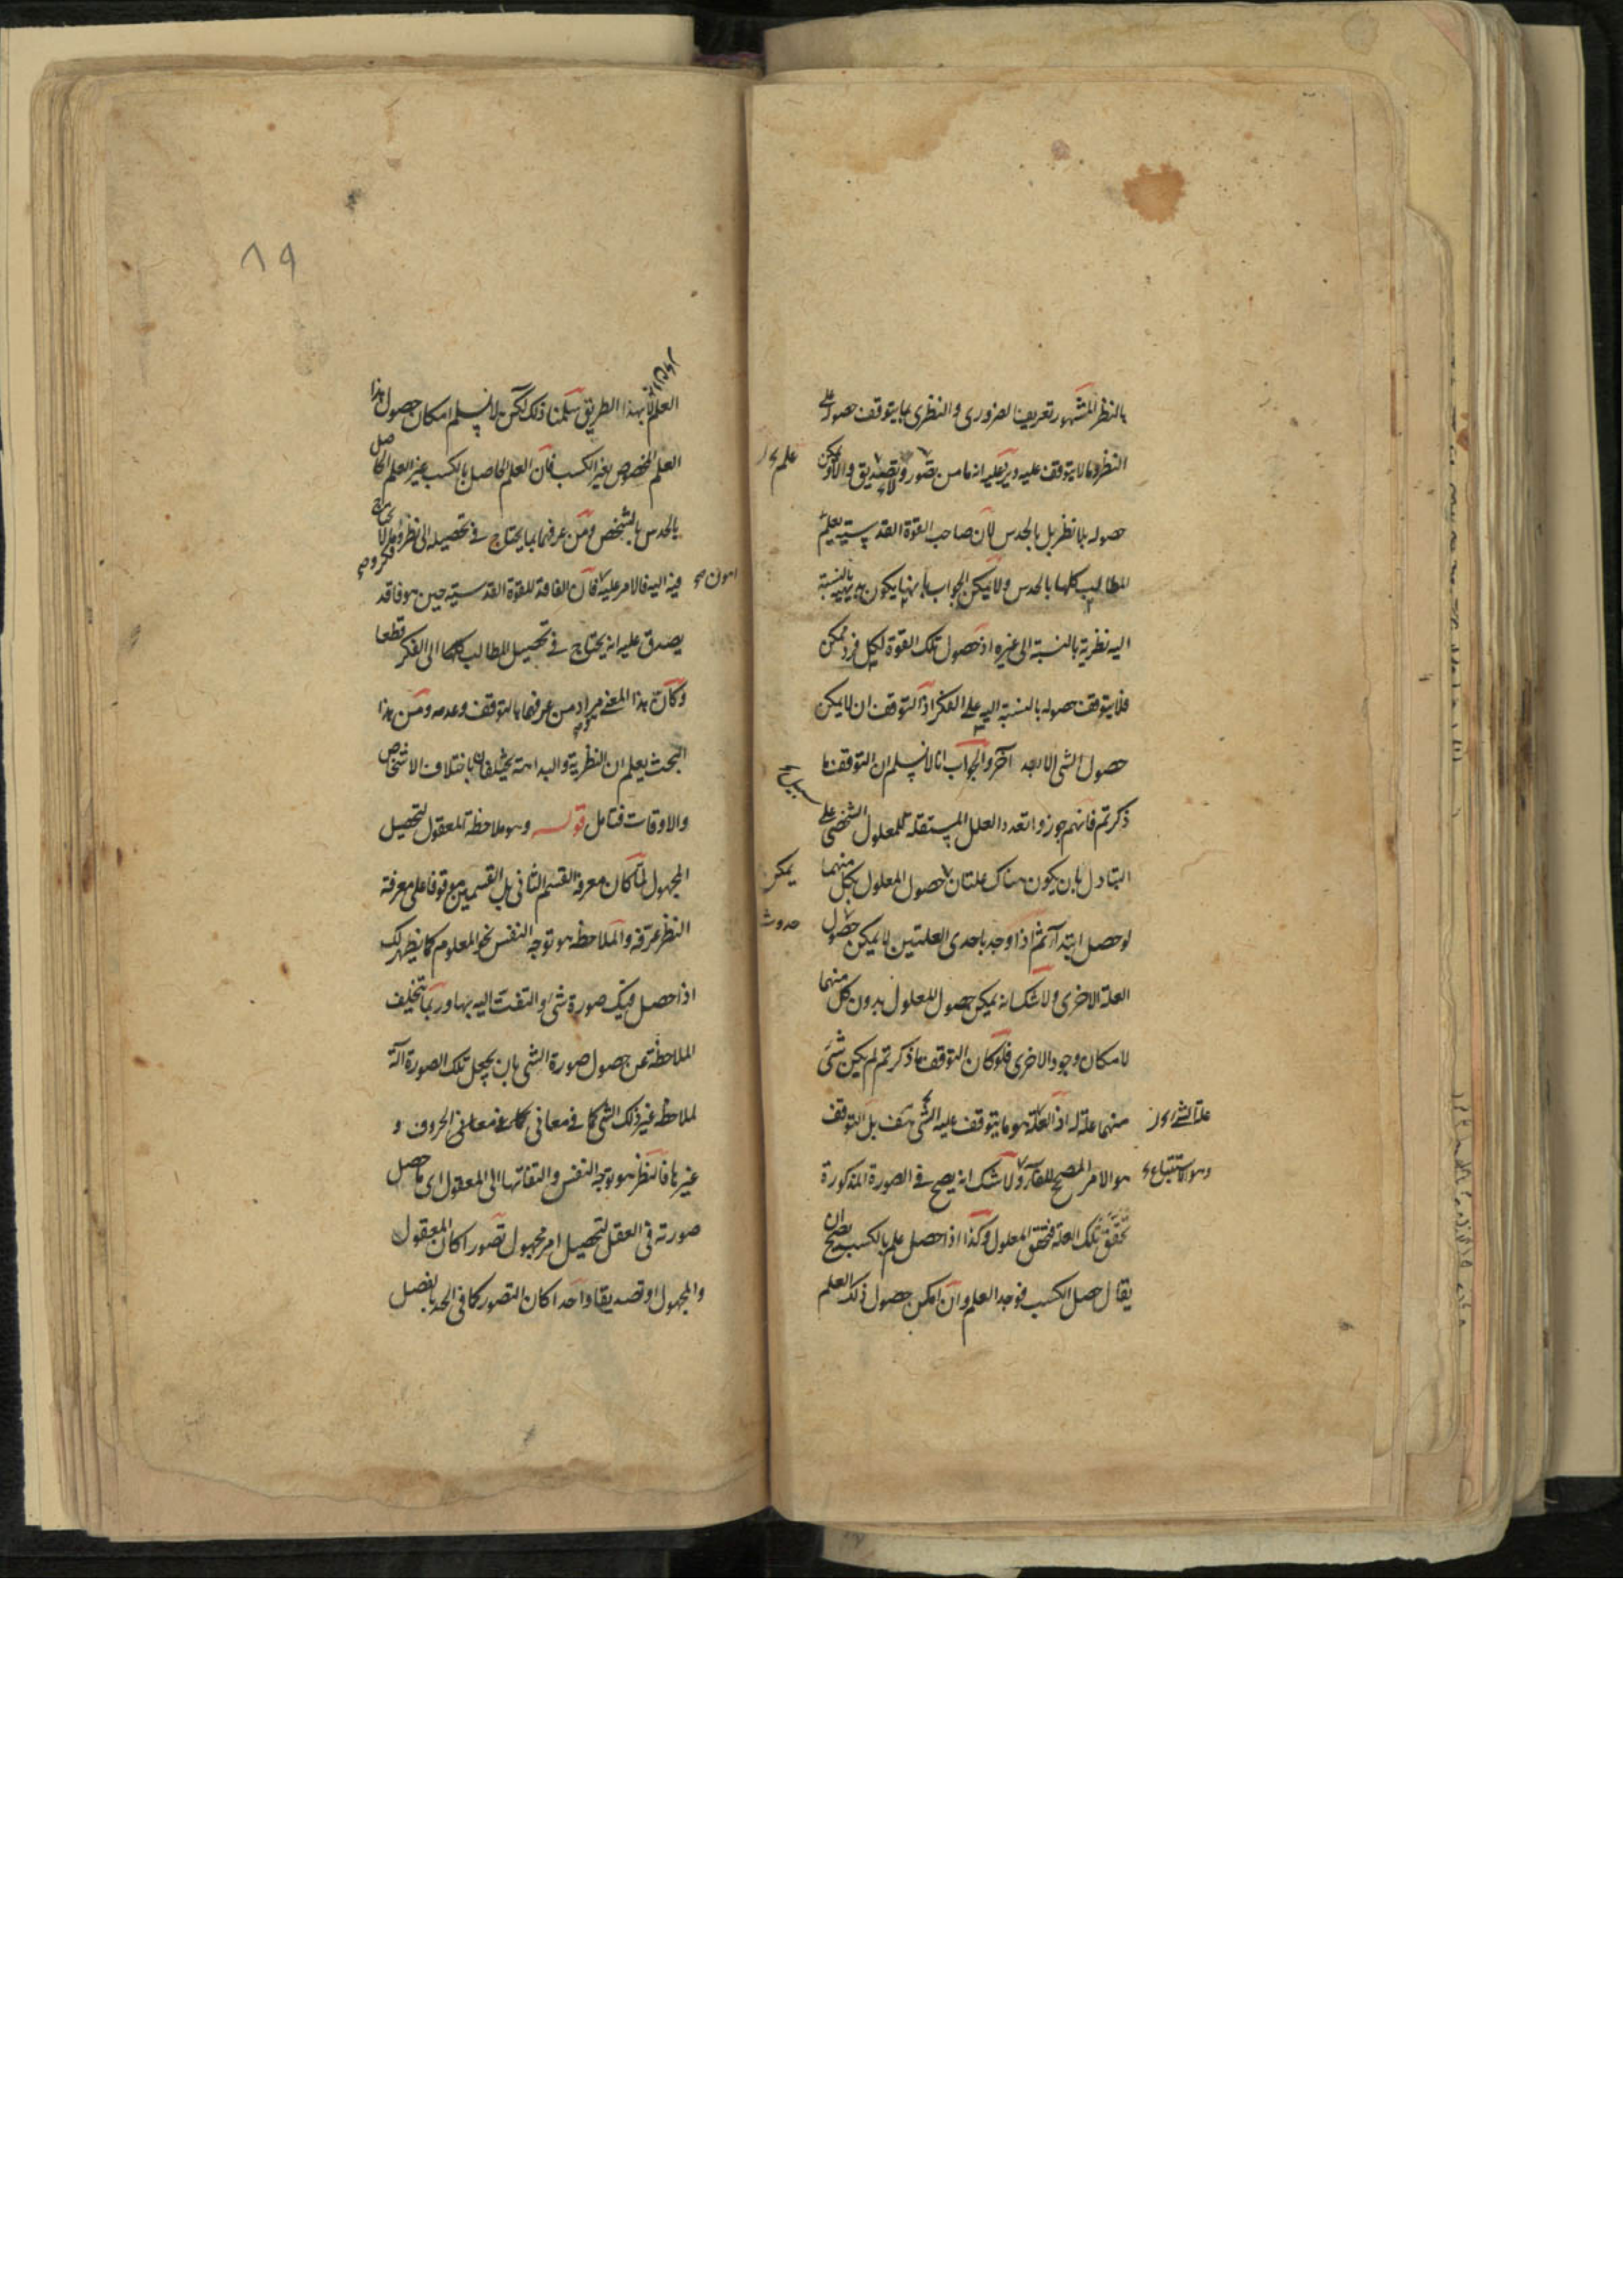 بالنظر المشهور تعريف الضروري والنظري بما يتوقف حصوله على
النظر وما لا يتوقف عليه ويرد عليه انه ما من تصور وتصديق الا ويمكن
علم
حصوله بلا نظر بل بالحدس لان صاحب القوة القدسية يعلم
المطالب كلها بالحدس ولا يمكن الجواب بانها يكون بديهية بالنسبة
اليه نظرية بالنسبة الى غيره اذ حصول تلك القوة لكل فرد ممكن
فلا يتوقف حصوله بالنسبة اليه على الفكر اذ التوقف ان لا يمكن
حصول الشي الا بعد آخر والجواب انا لا نسلم ان التوقف ما
ذكرتم فانهم جوزوا تعدد العلل المستقلة للمعلول الشخصي على
سبيل
التبادل بان يكون هناك علتان حصول المعلول بكل منهما
يمكن
لو حصل ابتداء ثم اذا وجد باحدى العلتين لا يمكن حصول
حدوث
العلة الاخرى ولا شك انه يمكن حصول المعلول بدون كل منهما
لامكان وجود الاخرى فلو كان التوقف ما ذكرتم لم يكن شئ
منهما علة له اذ العلة هو ما يتوقف عليه الشي هف بل التوقف
هو الامر المصحح للفاء ولا شك انه يصح في الصورة المذكورة
وهو الاستتباع
تحقق تلك العلة فتحقق المعلول وكذا اذا حصل علم بالكسب يصح ان
يقال حصل الكسب فوجد العلم وان امكن حصول ذلك العلم
٨٩
العلم لا بهذا الطريق سلمنا ذلك لكن لا نسلم امكان حصول هذا
العلم المخصوص بغير الكسب فان العلم الحاصل بالكسب غير العلم الحاصل
بالحدس بالشخص ومن عرفهما بما يحتاج في تحصيله الى نظر وفكر وما لا يحتاج
فيه اليه فالامر عليه فان الفاقد للقوة القدسية حين هو فاقد
اهون صح
يصدق عليه انه يحتاج في تحصيل المطالب كلها الى الفكر قطعا
وكان هذا المعنى مراد من عرفهما بالتوقف وعدمه ومن هذا
البحث يعلم ان النظرية والبداهة يختلفان باختلاف الاشخاص
والاوقات فتامل قوله وهو ملاحظة المعقول لتحصيل
المجهول لما كان معرفة القسم الثاني بل القسمين موقوفا على معرفة
النظر عرفه والملاحظة هو توجه النفس نحو المعلوم كما يظهر لك
اذا حصل فيك صورة شي والتفت اليه بها وربما تتخلف
الملاحظة عن حصول صورة الشي بان يجعل تلك الصورة آلة
لملاحظة غير ذلك الشي كما في معاني الحروف و
غيرها فالنظر هو توجه النفس والتفاتها الى المعقول اي ما حصل
صورته في العقل لتحصيل امر مجهول تصورا كان المعقول
والمجهول او تصديقا واحدا كان التصور كما في الحد بالفصل